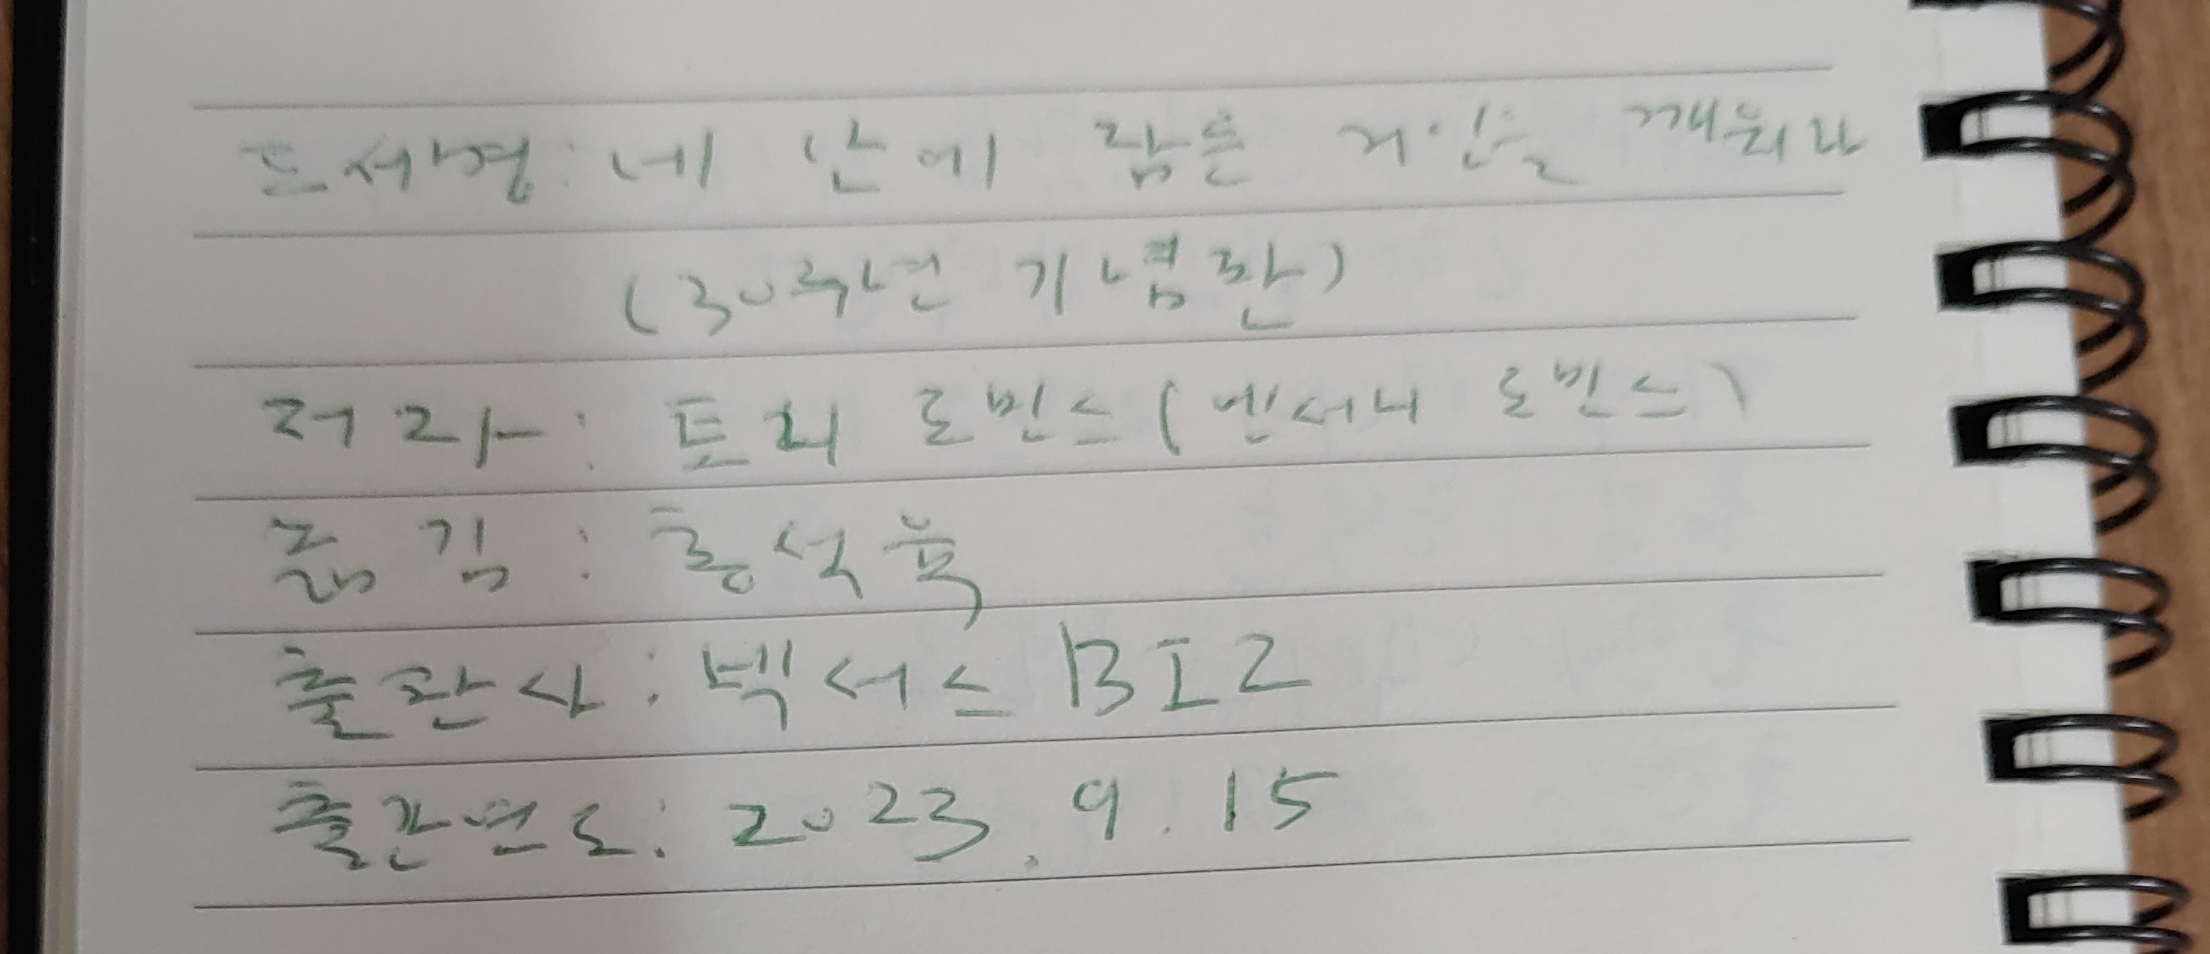 도서명: 네 안에 잠든 거인을 깨워라
(30주년 기념판)
저자: 토니 로빈스(앤서니 로빈스)
옮김: 홍석윤
출판사: 넥서스 BIZ
출간연도: 2023. 9. 15